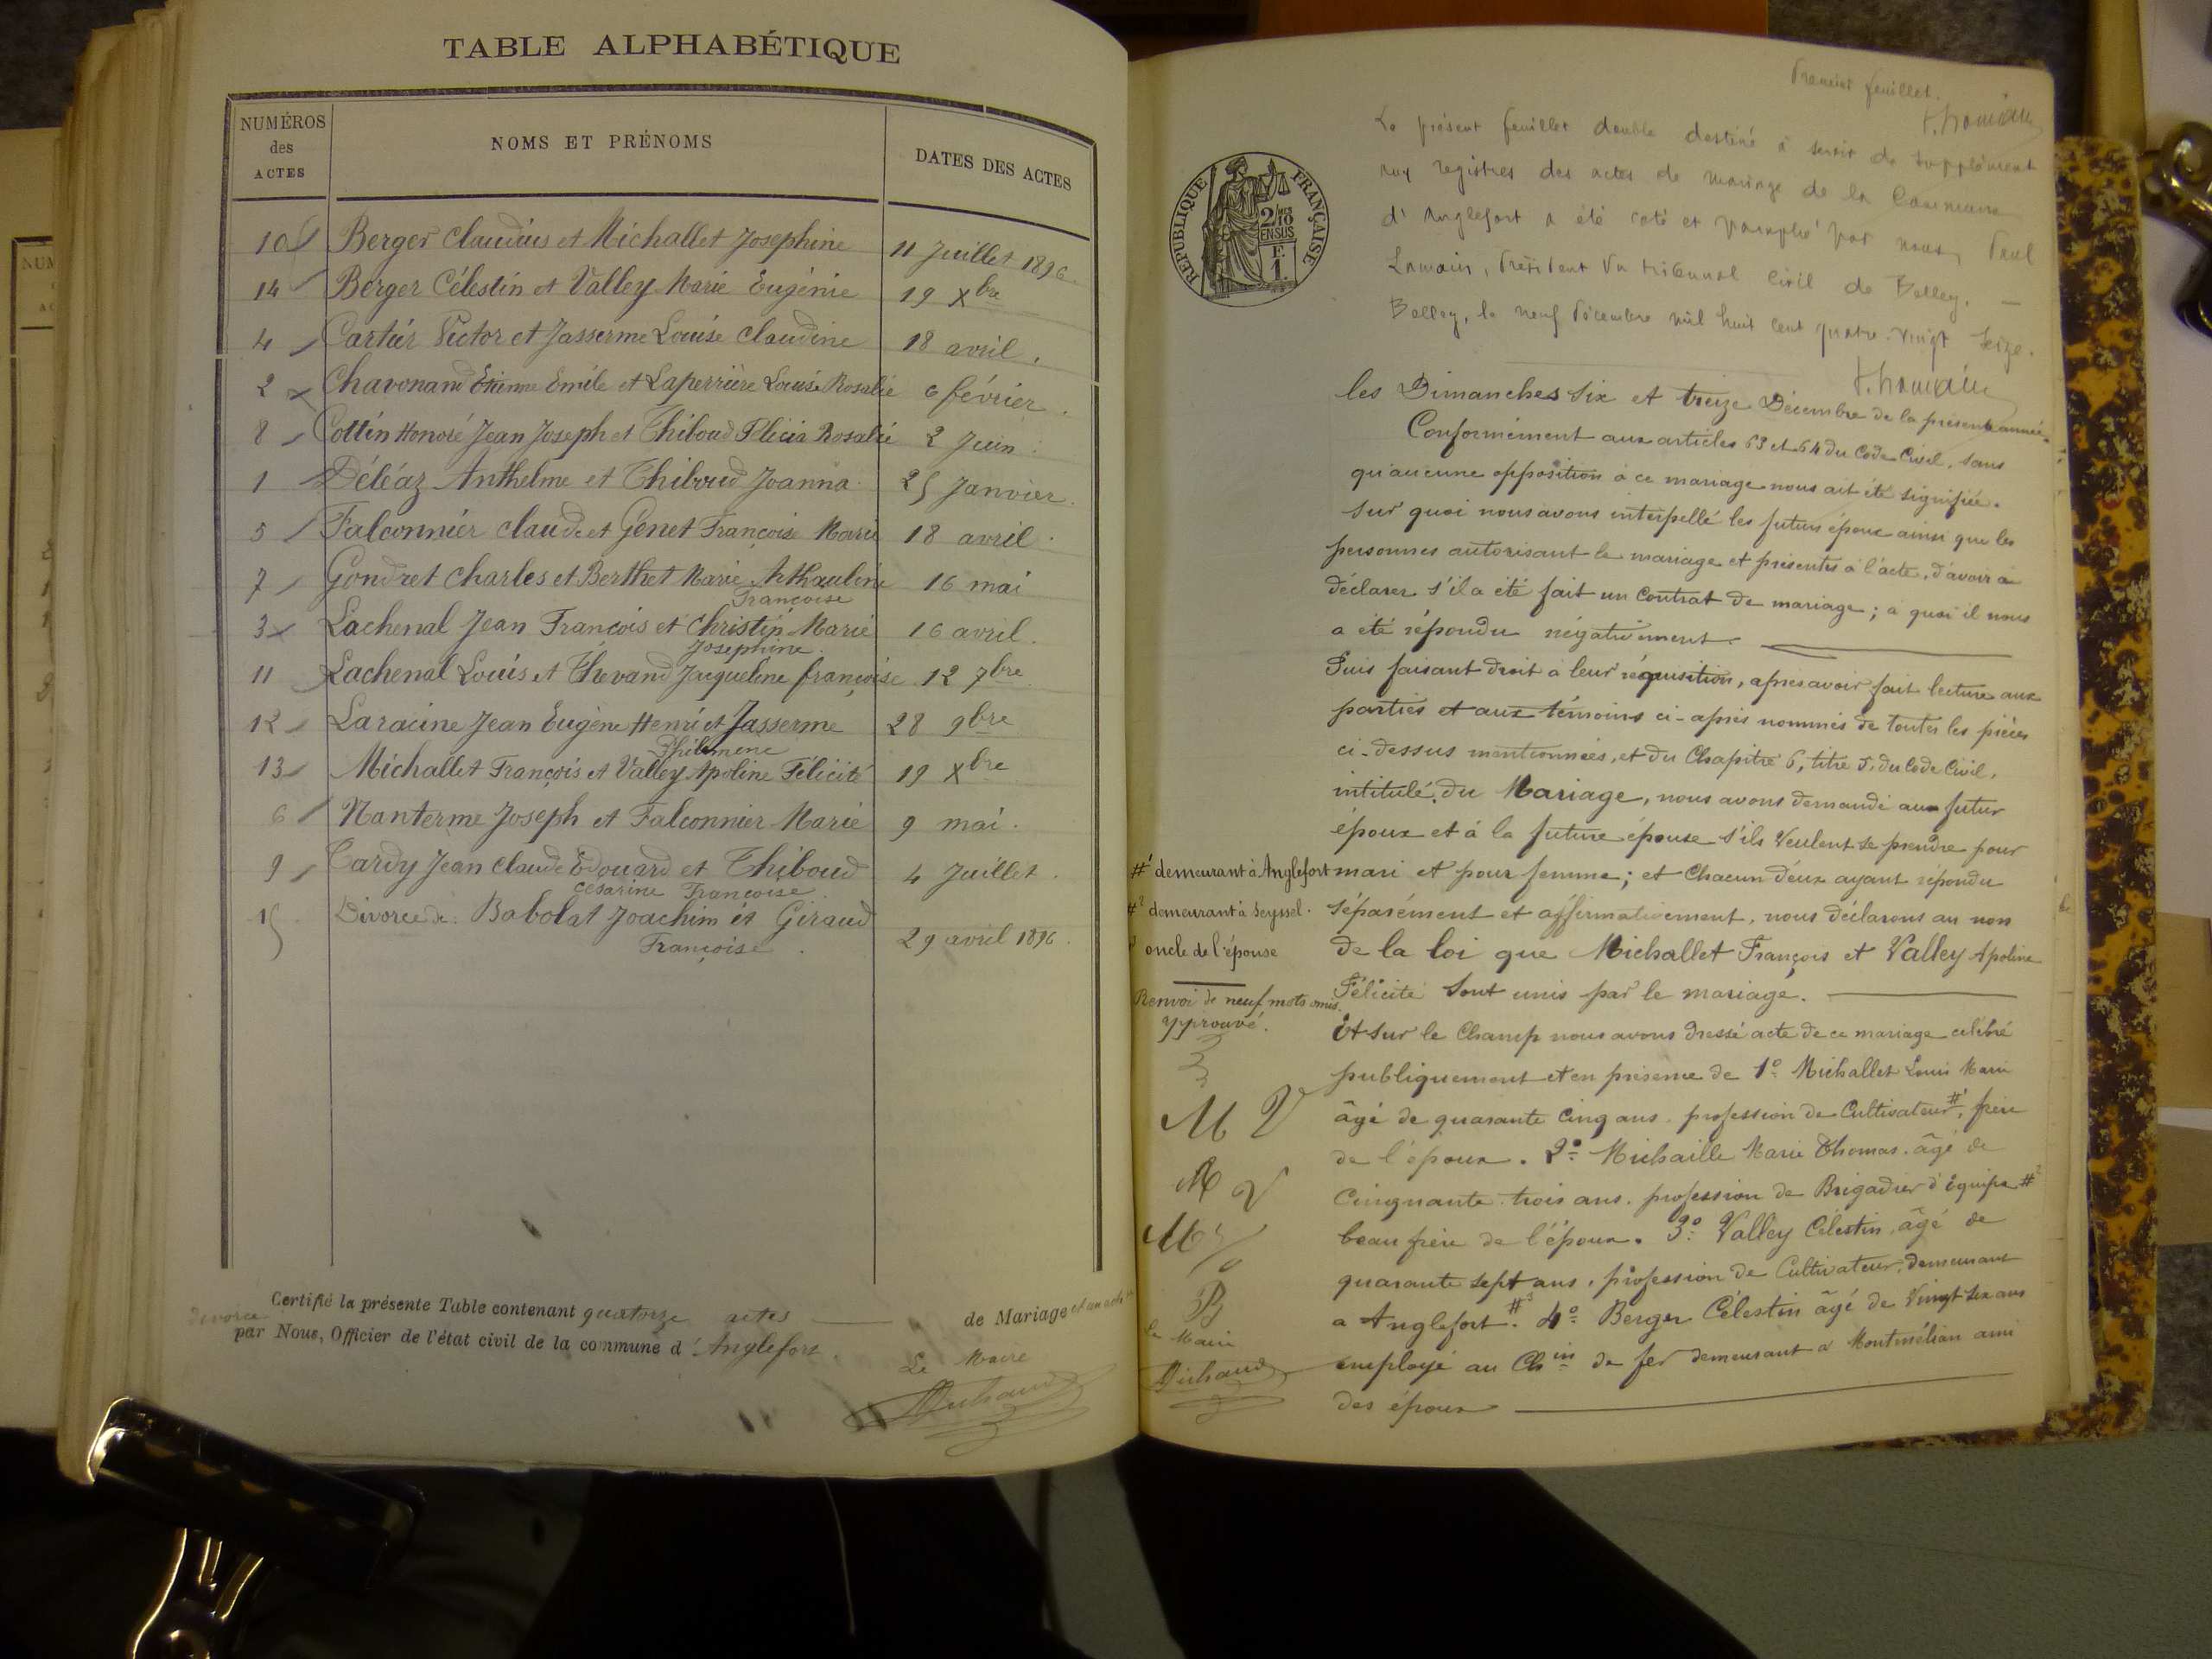 TABLE ALPHABÉTIQUE
NUMÉROS des ACTES
NOMS ET PRÉNOMS
DATES DES ACTES
10 Berger Claudius et Michallet Josephine 11 Juillet 1896
14 Berger Célestin et Valley Marie Eugénie 19 Xbre
4 Cartier Victor et Jasserme Louise Claudine 18 avril.
2 Chavonand Etienne Emile et Laperrière Louise Rosalie 6 février.
8 Cottin Honoré Jean Joseph et Thiboud Félicia Rosalie 2 Juin
1 Déléaz Anthelme et Thiboud Joanna 25 Janvier.
5 Falconnier Claude et Genet Françoise Marie 18 avril.
7 Gondret Charles et Berthet Marie Athauline 16 mai
Françoise
3 Lachenal Jean François et Christin Marie 16 avril.
Josephine.
11 Lachenal Louis et Thévand Jacqueline françoise 12 7bre
12 Laracine Jean Eugène Henri et Jasserme 28 9bre
Philomène
13 Michallet François et Valley Apoline Félicité 19 Xbre
6 Nanterme Joseph et Falconnier Marie 9 mai.
9 Tardy Jean Claude Edouard et Thiboud 4 Juillet.
Césarine Françoise
15 Divorce de Babolat Joachim et Giraud
Françoise. 29 avril 1896.
Certifié la présente Table contenant quatorze actes de Mariage et un acte de
divorce par Nous, Officier de l'état civil de la commune d'Anglefort.
Le Maire
Michaud
Premier feuillet.
Le présent feuillet double destiné à servir de supplément
aux registres des actes de mariage de la Commune
d'Anglefort a été coté et paraphé par nous, Paul
Lomain, Président du tribunal civil de Belley. —
Belley, le neuf Décembre mil huit cent quatre-vingt seize.
RÉPUBLIQUE FRANÇAISE
2/10 MES
EN SUS
F.
1.
les Dimanches six et treize Décembre de la présente année.
Conformément aux articles 63 et 64 du Code Civil, sans
qu'aucune opposition à ce mariage nous ait été signifiée.
Sur quoi nous avons interpellé les futurs époux ainsi que les
personnes autorisant le mariage et présentes à l'acte, d'avoir à
déclarer s'il a été fait un Contrat de mariage; a quoi il nous
a été répondu négativement.
Puis faisant droit à leur réquisition, après avoir fait lecture aux
parties et aux témoins ci-après nommés de toutes les pièces
ci-dessus mentionnées, et du Chapitre 6, titre 5, du Code Civil,
intitulé, du Mariage, nous avons demandé au futur
époux et à la future épouse s'ils veulent se prendre pour
mari et pour femme; et Chacun d'eux ayant répondu
séparément et affirmativement, nous déclarons au nom
de la loi que Michallet François et Valley Apoline
Félicité sont unis par le mariage.
Et sur le Champ nous avons dressé acte de ce mariage célébré
publiquement et en présence de 1° Michallet Louis Marie
âgé de quarante cinq ans. profession de Cultivateur #1, frère
de l'époux. 2° Michaille Marie Thomas. âgé de
Cinquante trois ans. profession de Brigadier d'équipe #2
beau frère de l'époux. 3° Valley Célestin, âgé de
quarante sept ans, profession de Cultivateur, demeurant
a Anglefort #3. 4° Berger Célestin âgé de Vingt six ans
employé au Chin de fer demeurant à Montmélian ami
des époux
#1 demeurant à Anglefort
#2 demeurant à Seyssel.
#3 oncle de l'épouse
Renvoi de neuf mots omis.
approuvé.
M V
M V
B
Le Maire
Michaud